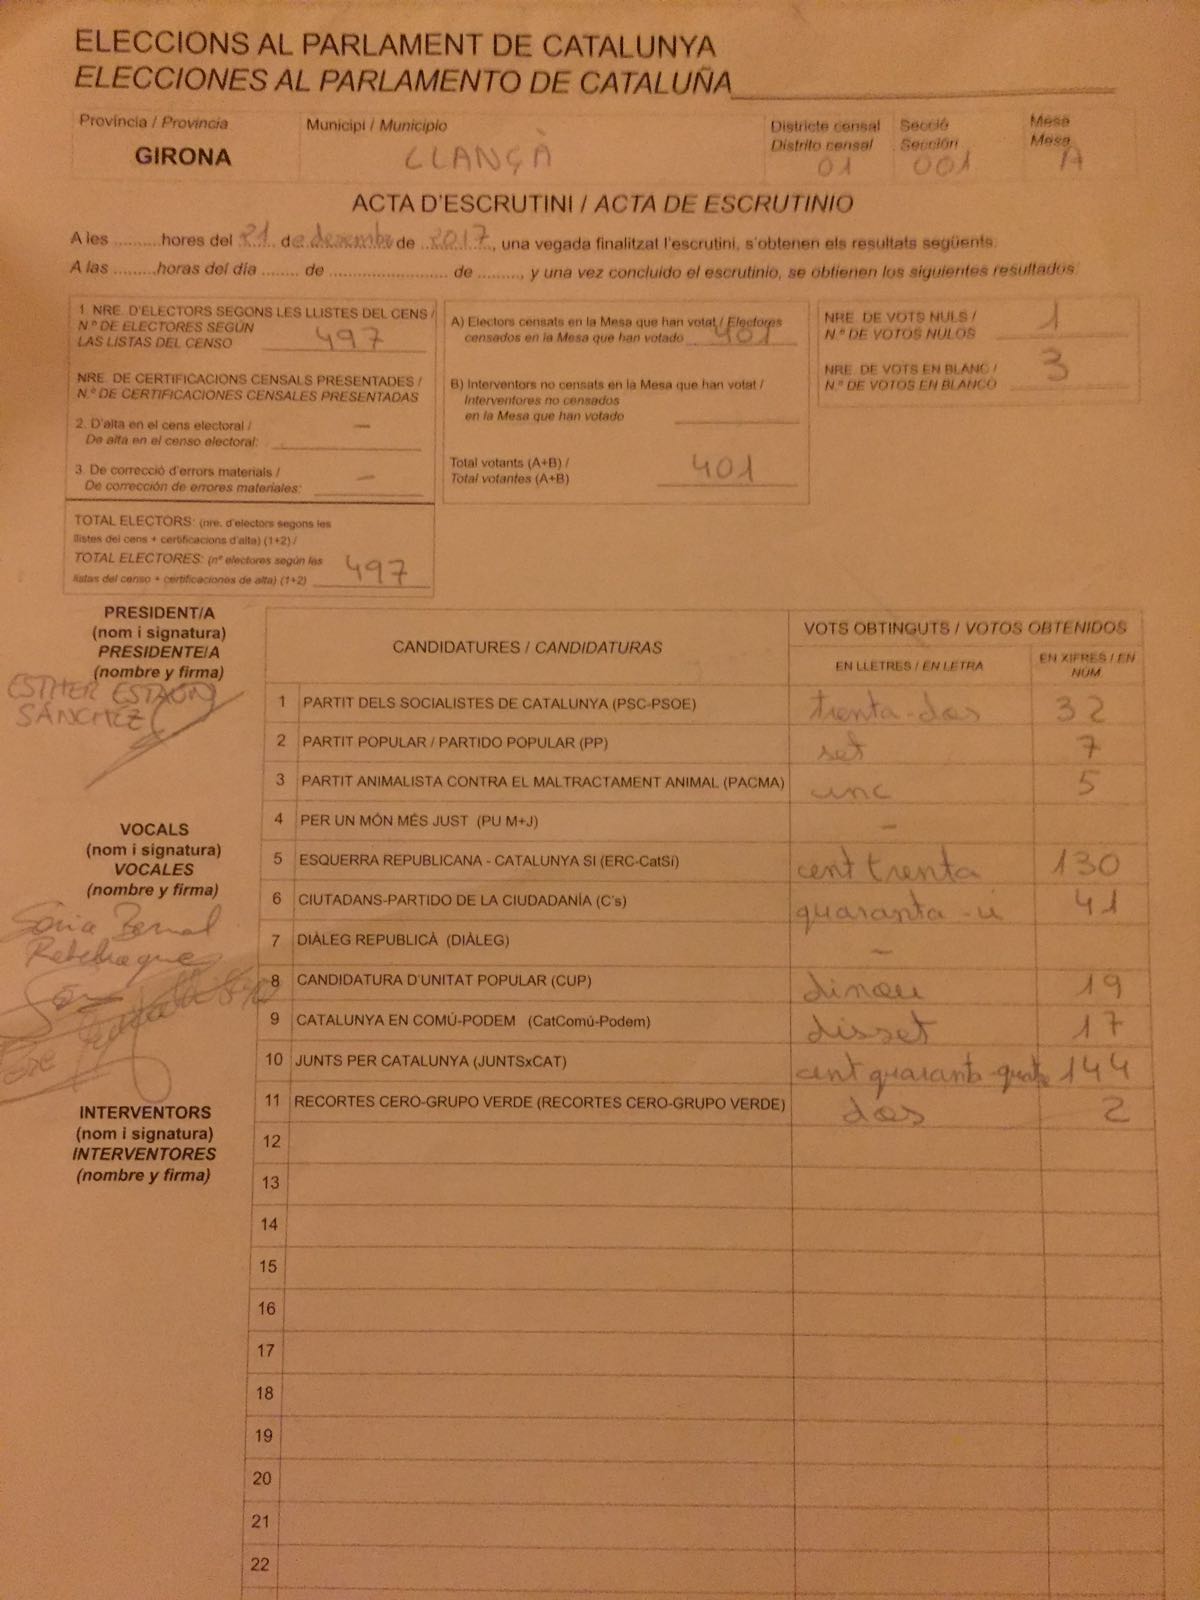 ELECCIONS AL PARLAMENT DE CATALUNYA
ELECCIONES AL PARLAMENTO DE CATALUÑA
Província / Provincia
GIRONA
Municipi / Municipio
LLANÇÀ
Districte censal
Distrito censal
01
Secció
Sección
001
Mesa
Mesa
A
ACTA D'ESCRUTINI / ACTA DE ESCRUTINIO
A les .........hores del 21 de desembre de 2017, una vegada finalitzat l'escrutini, s'obtenen els resultats següents.
A las .........horas del día ....... de ........................ de ........, y una vez concluido el escrutinio, se obtienen los siguientes resultados.
1. NRE. D'ELECTORS SEGONS LES LLISTES DEL CENS /
N.º DE ELECTORES SEGÚN
LAS LISTAS DEL CENSO 497
NRE. DE CERTIFICACIONS CENSALS PRESENTADES /
N.º DE CERTIFICACIONES CENSALES PRESENTADAS
2. D'alta en el cens electoral / –
De alta en el censo electoral:
3. De correcció d'errors materials / –
De corrección de errores materiales:
TOTAL ELECTORS: (nre. d'electors segons les
llistes del cens + certificacions d'alta) (1+2) /
TOTAL ELECTORES: (nº electores según las
listas del censo + certificaciones de alta) (1+2) 497
A) Electors censats en la Mesa que han votat / Electores
censados en la Mesa que han votado 401
B) Interventors no censats en la Mesa que han votat /
Interventores no censados
en la Mesa que han votado
Total votants (A+B) /
Total votantes (A+B) 401
NRE. DE VOTS NULS /
N.º DE VOTOS NULOS 1
NRE. DE VOTS EN BLANC /
N.º DE VOTOS EN BLANCO 3
PRESIDENT/A
(nom i signatura)
PRESIDENTE/A
(nombre y firma)
ESTHER
SÁNCHEZ
VOCALS
(nom i signatura)
VOCALES
(nombre y firma)
Sònia Bernal
INTERVENTORS
(nom i signatura)
INTERVENTORES
(nombre y firma)
CANDIDATURES / CANDIDATURAS
VOTS OBTINGUTS / VOTOS OBTENIDOS
EN LLETRES / EN LETRA
EN XIFRES / EN
NÚM
1 PARTIT DELS SOCIALISTES DE CATALUNYA (PSC-PSOE) trenta-dos 32
2 PARTIT POPULAR / PARTIDO POPULAR (PP) set 7
3 PARTIT ANIMALISTA CONTRA EL MALTRACTAMENT ANIMAL (PACMA) cinc 5
4 PER UN MÓN MÉS JUST (PU M+J) –
5 ESQUERRA REPUBLICANA - CATALUNYA SI (ERC-CatSí) cent trenta 130
6 CIUTADANS-PARTIDO DE LA CIUDADANÍA (C's) quaranta-u 41
7 DIÀLEG REPUBLICÀ (DIÀLEG) –
8 CANDIDATURA D'UNITAT POPULAR (CUP) dinou 19
9 CATALUNYA EN COMÚ-PODEM (CatComú-Podem) disset 17
10 JUNTS PER CATALUNYA (JUNTSxCAT) cent quaranta-quatre 144
11 RECORTES CERO-GRUPO VERDE (RECORTES CERO-GRUPO VERDE) dos 2
12
13
14
15
16
17
18
19
20
21
22